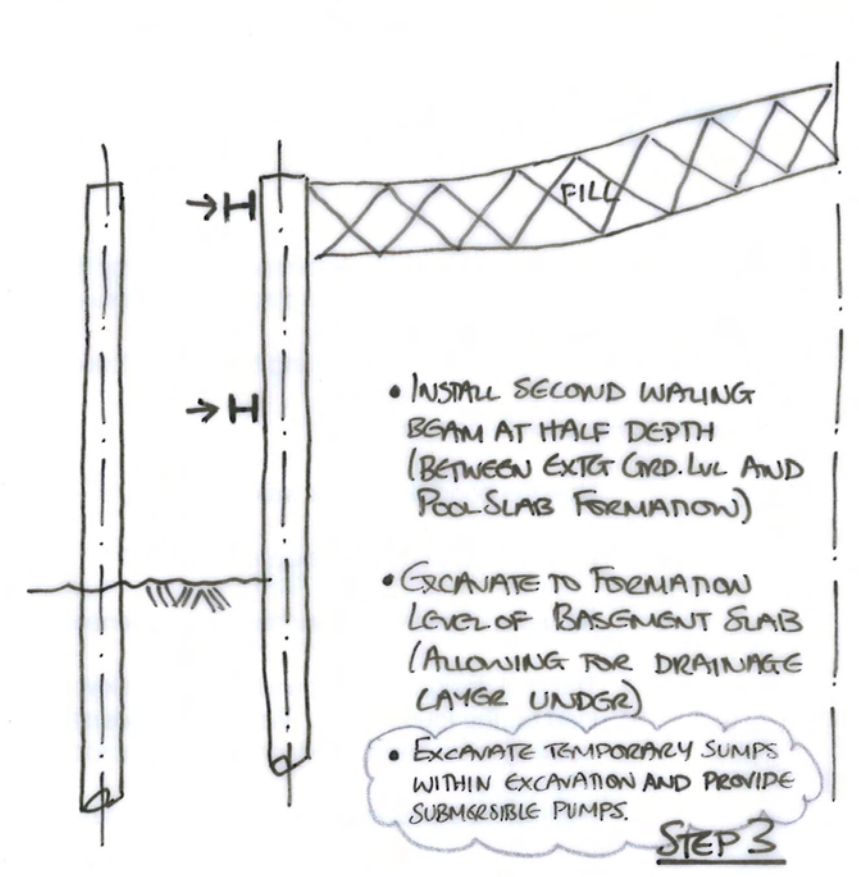 FILL
• INSTALL SECOND WALING
BEAM AT HALF DEPTH
(BETWEEN EXTG GRD. LVL AND
POOL SLAB FORMATION)
• EXCAVATE TO FORMATION
LEVEL OF BASEMENT SLAB
(ALLOWING FOR DRAINAGE
LAYER UNDER)
• EXCAVATE TEMPORARY SUMPS
WITHIN EXCAVATION AND PROVIDE
SUBMERSIBLE PUMPS.
STEP 3